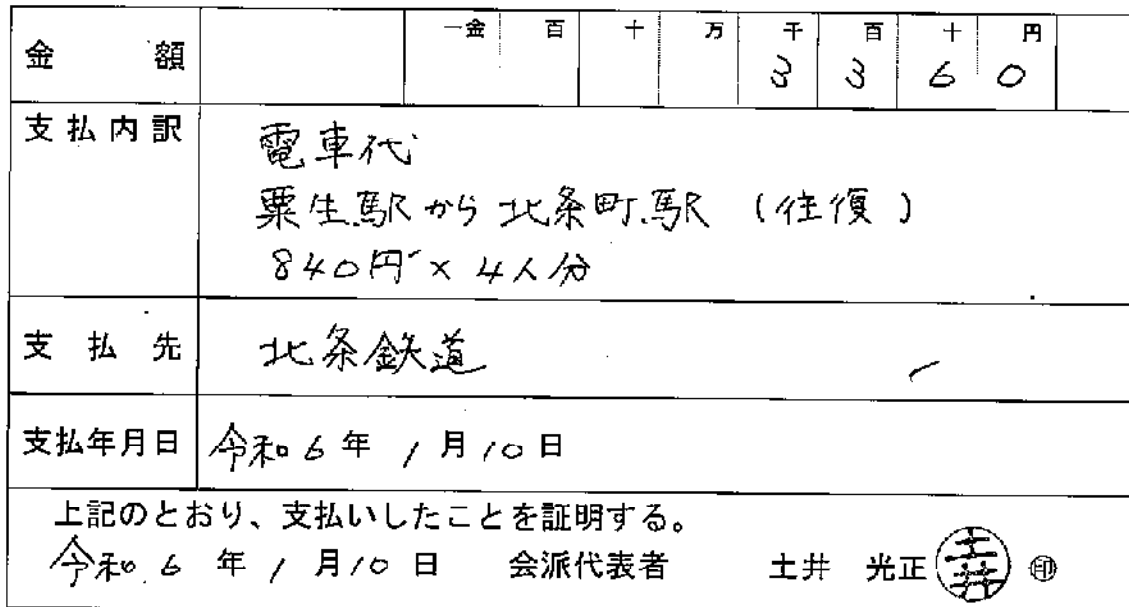 金額 一金 百 十 万 千 百 十 円
3 3 6 0
支払内訳 電車代
粟生駅から北条町駅 (往復)
840円×4人分
支払先 北条鉄道
支払年月日 令和6年1月10日
上記のとおり、支払いしたことを証明する。
令和6年1月10日 会派代表者 土井 光正 土井 ㊞